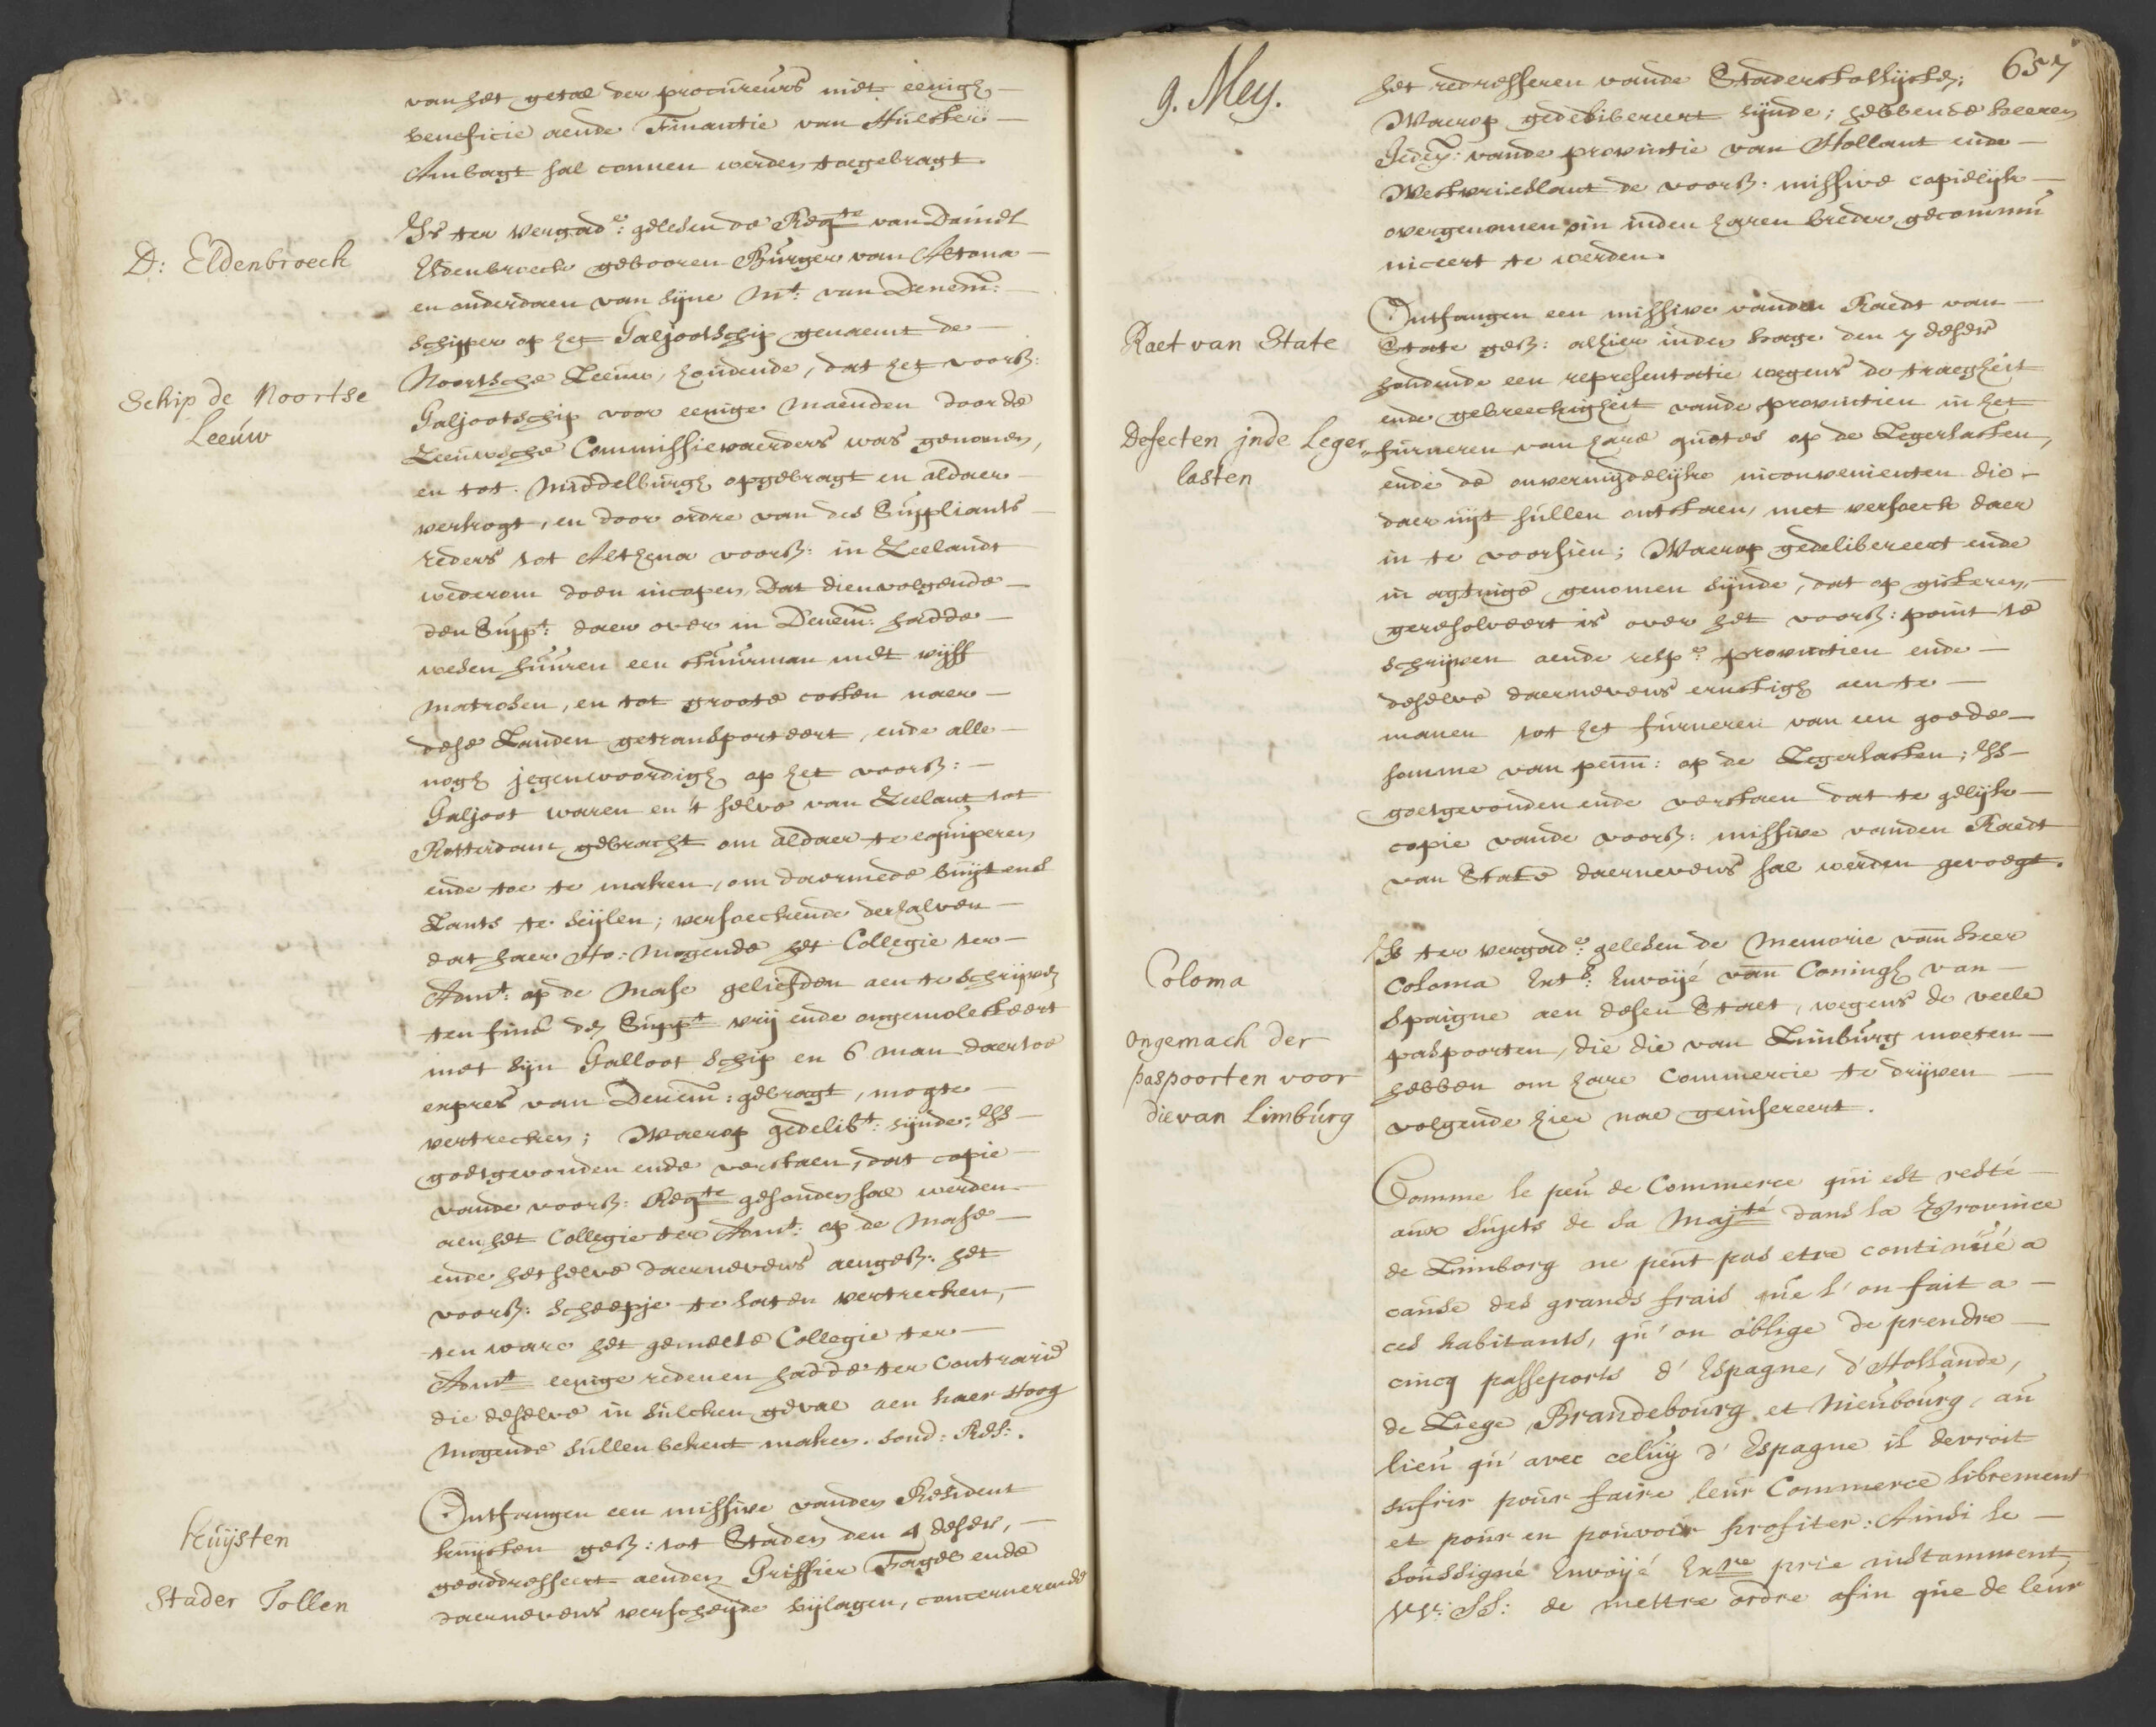 van het getal der procureurs met eenigh
beneficie aende Finantie van Hulster
Ambagt sal connen werden toegebragt.
D: Eldenbroeck
Is ter vergade: gelesen de Reqte van Daniel
Eldenbroeck gebooren Burger van Altona
en onderdaen van sijne Mt: van Denem:
schipper op het Galjootschip genaemt de
Schip de Noortse
Leeuw
Noortsche Leeuw, houdende, dat het voors:
Galjootschip voor eenige maenden door de
Zeeuwsche Commissievaerders was genomen,
en tot Middelburgh opgebragt en aldaer
verkogt, en door ordre van des Suppliants
reders tot Althena voors: in Zeelandt
wederom doen incopen, Dat dienvolgende
den Suppt: daer over in Denem: hadde
weden huuren een stuurman met vijff
matrosen, en tot groote costen naer
dese Landen getransporteert, ende alle
nogh jegenwoordigh op het voors:
Galjoot waren en 't selve van Zeelant tot
Rotterdam gebracht om aldaer te equiperen
ende toe te maken, om daermede buijtens
Lants te seijlen; versoeckende derhalven
dat haer Ho: Mogende het Collegie ter
Admt: op de Mase geliefden aen te schrijven
ten fine den Suppt vrij ende ongemolesteert
met sijn Galloot schip en 6 man daertoe
expres van Denem: gebragt, mogte
vertrecken; Waerop gedelibt: sijnde; Is
goetgevonden ende verstaen, dat copie
vande voors: Reqte gesonden sal werden
aen het Collegie ter Admt: op de Mase
ende het selve daernevens aenges: het
voors: scheepje te laten vertrecken,
ten ware het gemelte Collegie ter
Admt eenige redenen hadde ter Contrarie
die deselve in sulcken geval aen haer Hoog
Mogende sullen bekent maken. sond: Res:.
Kuijsten
Stader Tollen
Ontfangen een missive vanden Resident
kuijsten ges: tot Staden den 4 deser,
geaddresseert aenden Griffier Fagel ende
daernevens verscheijde bijlagen, concernerende
9. Meij.
657
het redresseren vande Staderstollijste;
Waerop gedelibereert sijnde; hebben de heeren
Gedep: vande provintie van Hollant ende
Westvrieslant de voors: missive copielijk
overgenomen om inden haren breder gecommu
niceert te werden.
Raet van State
Ontfangen een missive vanden Raedt van
State ges: alhier inden hage den 7 deser
houdende een representatie wegens de traegheit
ende gebreeckigheit vande provintien in het
Defecten jnde Leger
lasten
furneren van hare quotes op de Legerlasten,
ende de onvermijdelijke inconvenienten die
daer uijt sullen ontstaen, met versoeck daer
in te voorsien; Waerop gedelibereert ende
in agtinge genomen sijnde, dat op gisteren
geresolveert is over het voors: point te
schrijven aende respe provintien ende
deselve daernevens ernstigh aen te
manen tot het furneren van een goede
somme van penn: op de Legerlasten; Is
goetgevonden ende verstaen dat te gelijk
copie vande voors: missive vanden Raedt
van State daernevens sal werden gevoegt.
Coloma
Is ter vergade: gelesen de Memorie van heer
Coloma Exts: Envoijé van Coningh van
Spaigne aen desen Staet, wegens de veele
ongemach der
paspoorten voor
die van Limburg
paspoorten, die die van Limburg moeten
hebben om hare Commercie te drijven
volgende hier nae geinsereert.
Comme le peu de Commerce qui est resté
aux sujets de Sa Majté dans la Province
de Limborg ne peut pas etre continúé a
cause des grands frais que l'on fait a
ces habitants, qu'on oblige de prendre
cincq passeports d'Espagne, d'Hollande,
de Liege, Brandebourg et Nieubourg, au
lieu qu'avec celuij d'Espagne il devroit
sufrir pour faire leur Commerce librement
et pour en pouvoir profiter: Ainsi le
Soussigné Envoijé Extre prie instamment
VV: SS: de mettre ordre afin que de leur